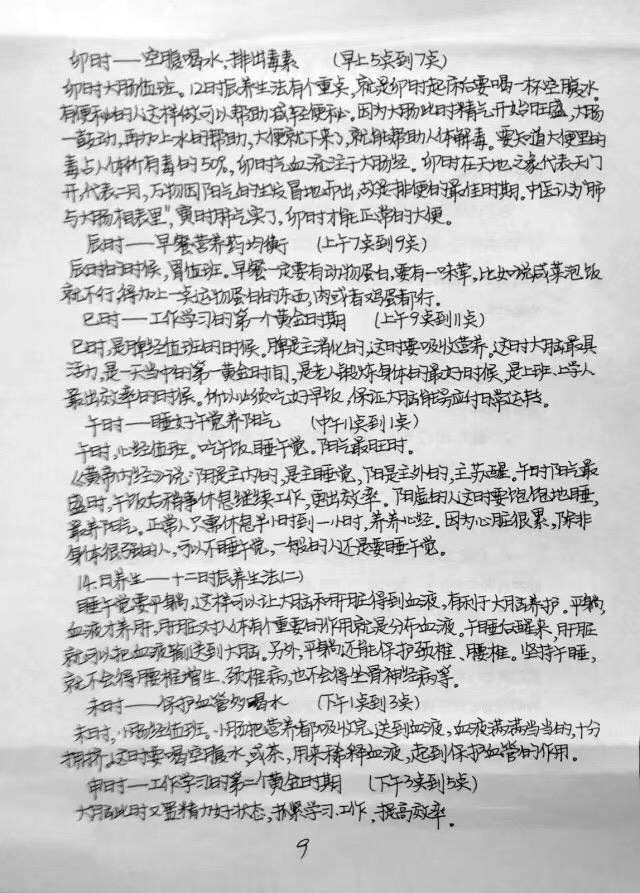 卯时——空腹喝水,排出毒素 (早上5点到7点)
卯时大肠值班。12时辰养生法有个重点,就是卯时起床后要喝一杯空腹水。
有便秘的人这样做可以帮助减轻便秘。因为大肠此时精气开始旺盛,大肠
一鼓动,再加上水的帮助,大便就下来了,就能帮助人体解毒。要知道大便里的
毒占人体所有毒的50%,卯时气血流注于大肠经。卯时在天地之象代表天门
开,代表二月,万物因阳气的生发冒地而出,故是排便的最佳时期。中医认为“肺
与大肠相表里”,寅时肺气实了,卯时才能正常的大便。
辰时——早餐营养要均衡 (上午7点到9点)
辰时的时候,胃值班。早餐一定要有动物蛋白,要有一味荤,比如说咸菜泡饭
就不行,得加上一点动物蛋白的东西,肉或者鸡蛋都行。
巳时——工作学习的第一个黄金时期 (上午9点到11点)
巳时,是脾经值班的时候。脾是主消化的,这时要吸收营养。这时大脑最具
活力,是一天当中的第一黄金时间,是老人锻炼身体的最好时候,是上班、上学人
最出效率的时候。所以必须吃好早饭,保证大脑能够应付日常运转。
午时——睡好午觉养阳气 (中午11点到1点)
午时,心经值班。吃午饭、睡午觉。阳气最旺时。
《黄帝内经》说:阴是主内的,是主睡觉,阳是主外的,主苏醒。午时阳气最
盛时,午饭后稍事休息继续工作,更出效率。阳虚的人这时要饱饱地睡,
最养阳气。正常人只需休息半小时到一小时,养养心经。因为心脏很累,除非
身体很强的人,可以不睡午觉,一般的人还是要睡午觉。
14.日养生——十二时辰养生法(二)
睡午觉要平躺,这样可以让大脑和肝脏得到血液,有利于大脑养护。平躺,
血液才养肝,肝脏对人体有个重要的作用就是分布血液。午睡后醒来,肝脏
就可以把血液输送到大脑。另外,平躺还能保护颈椎、腰椎。坚持午睡,
就不会得腰椎增生、颈椎病,也不会得坐骨神经病等。
未时——保护血管多喝水 (下午1点到3点)
未时,小肠经值班。小肠把营养都吸收完,送到血液,血液满满当当的,十分
拥挤。这时要喝空腹水,或茶,用来稀释血液,起到保护血管的作用。
申时——工作学习的第二个黄金时期 (下午3点到5点)
大脑此时又置精力好状态,抓紧学习、工作,提高效率。
9